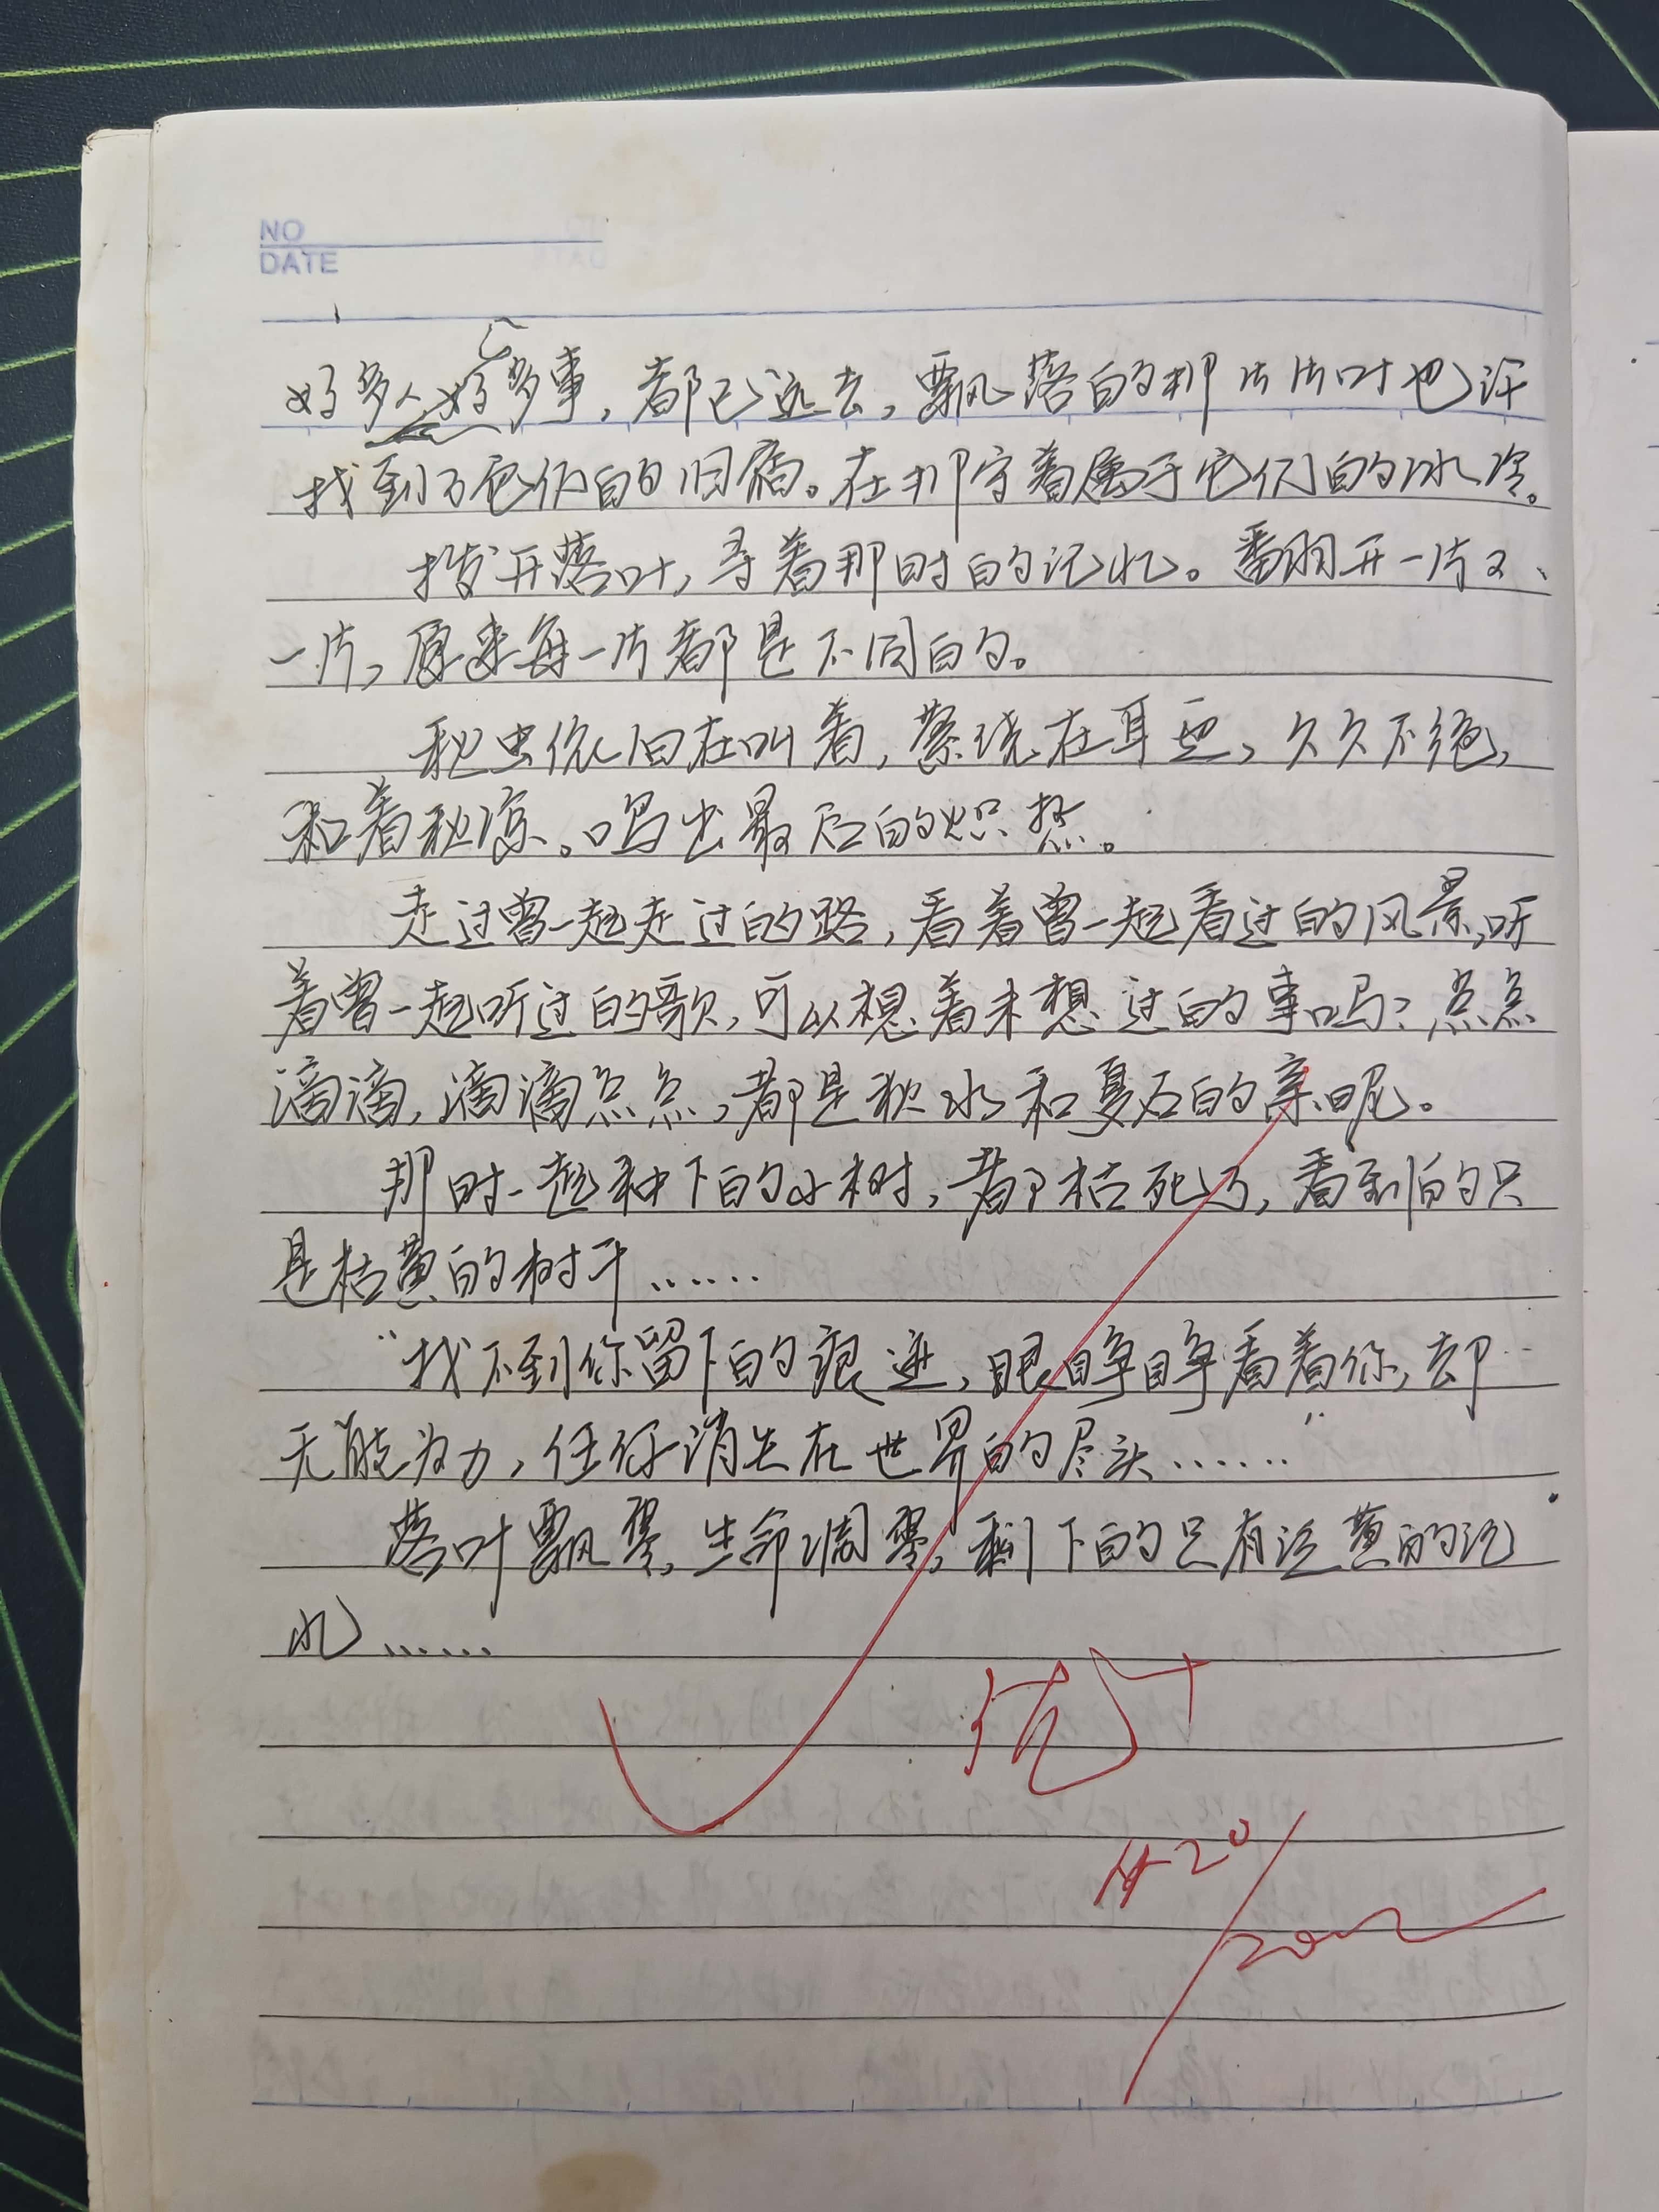 NO
DATE
好多人好多事，都已远去，飘落的那片片叶也许
找到了它们的归宿。在那守着属于它们的冰冷。
拨开落叶，寻着那时的记忆。翻开一片又
一片，原来每一片都是不同的。
秋虫依旧在叫着，萦绕在耳边，久久不绝，
和着秋凉。唱出最后的炽热。
走过曾一起走过的路，看着曾一起看过的风景，听
着曾一起听过的歌，可以想着未想过的事吗？点点
滴滴，滴滴点点，都是秋水和夏石的亲昵。
那时一起种下的小树，都枯死了，看到的只
是枯黄的树干……
“找不到你留下的痕迹，眼睁睁看着你，却
无能为力，任你消失在世界的尽头……”
落叶飘零，生命凋零，剩下的只有泛黄的记
忆……
优+
20/